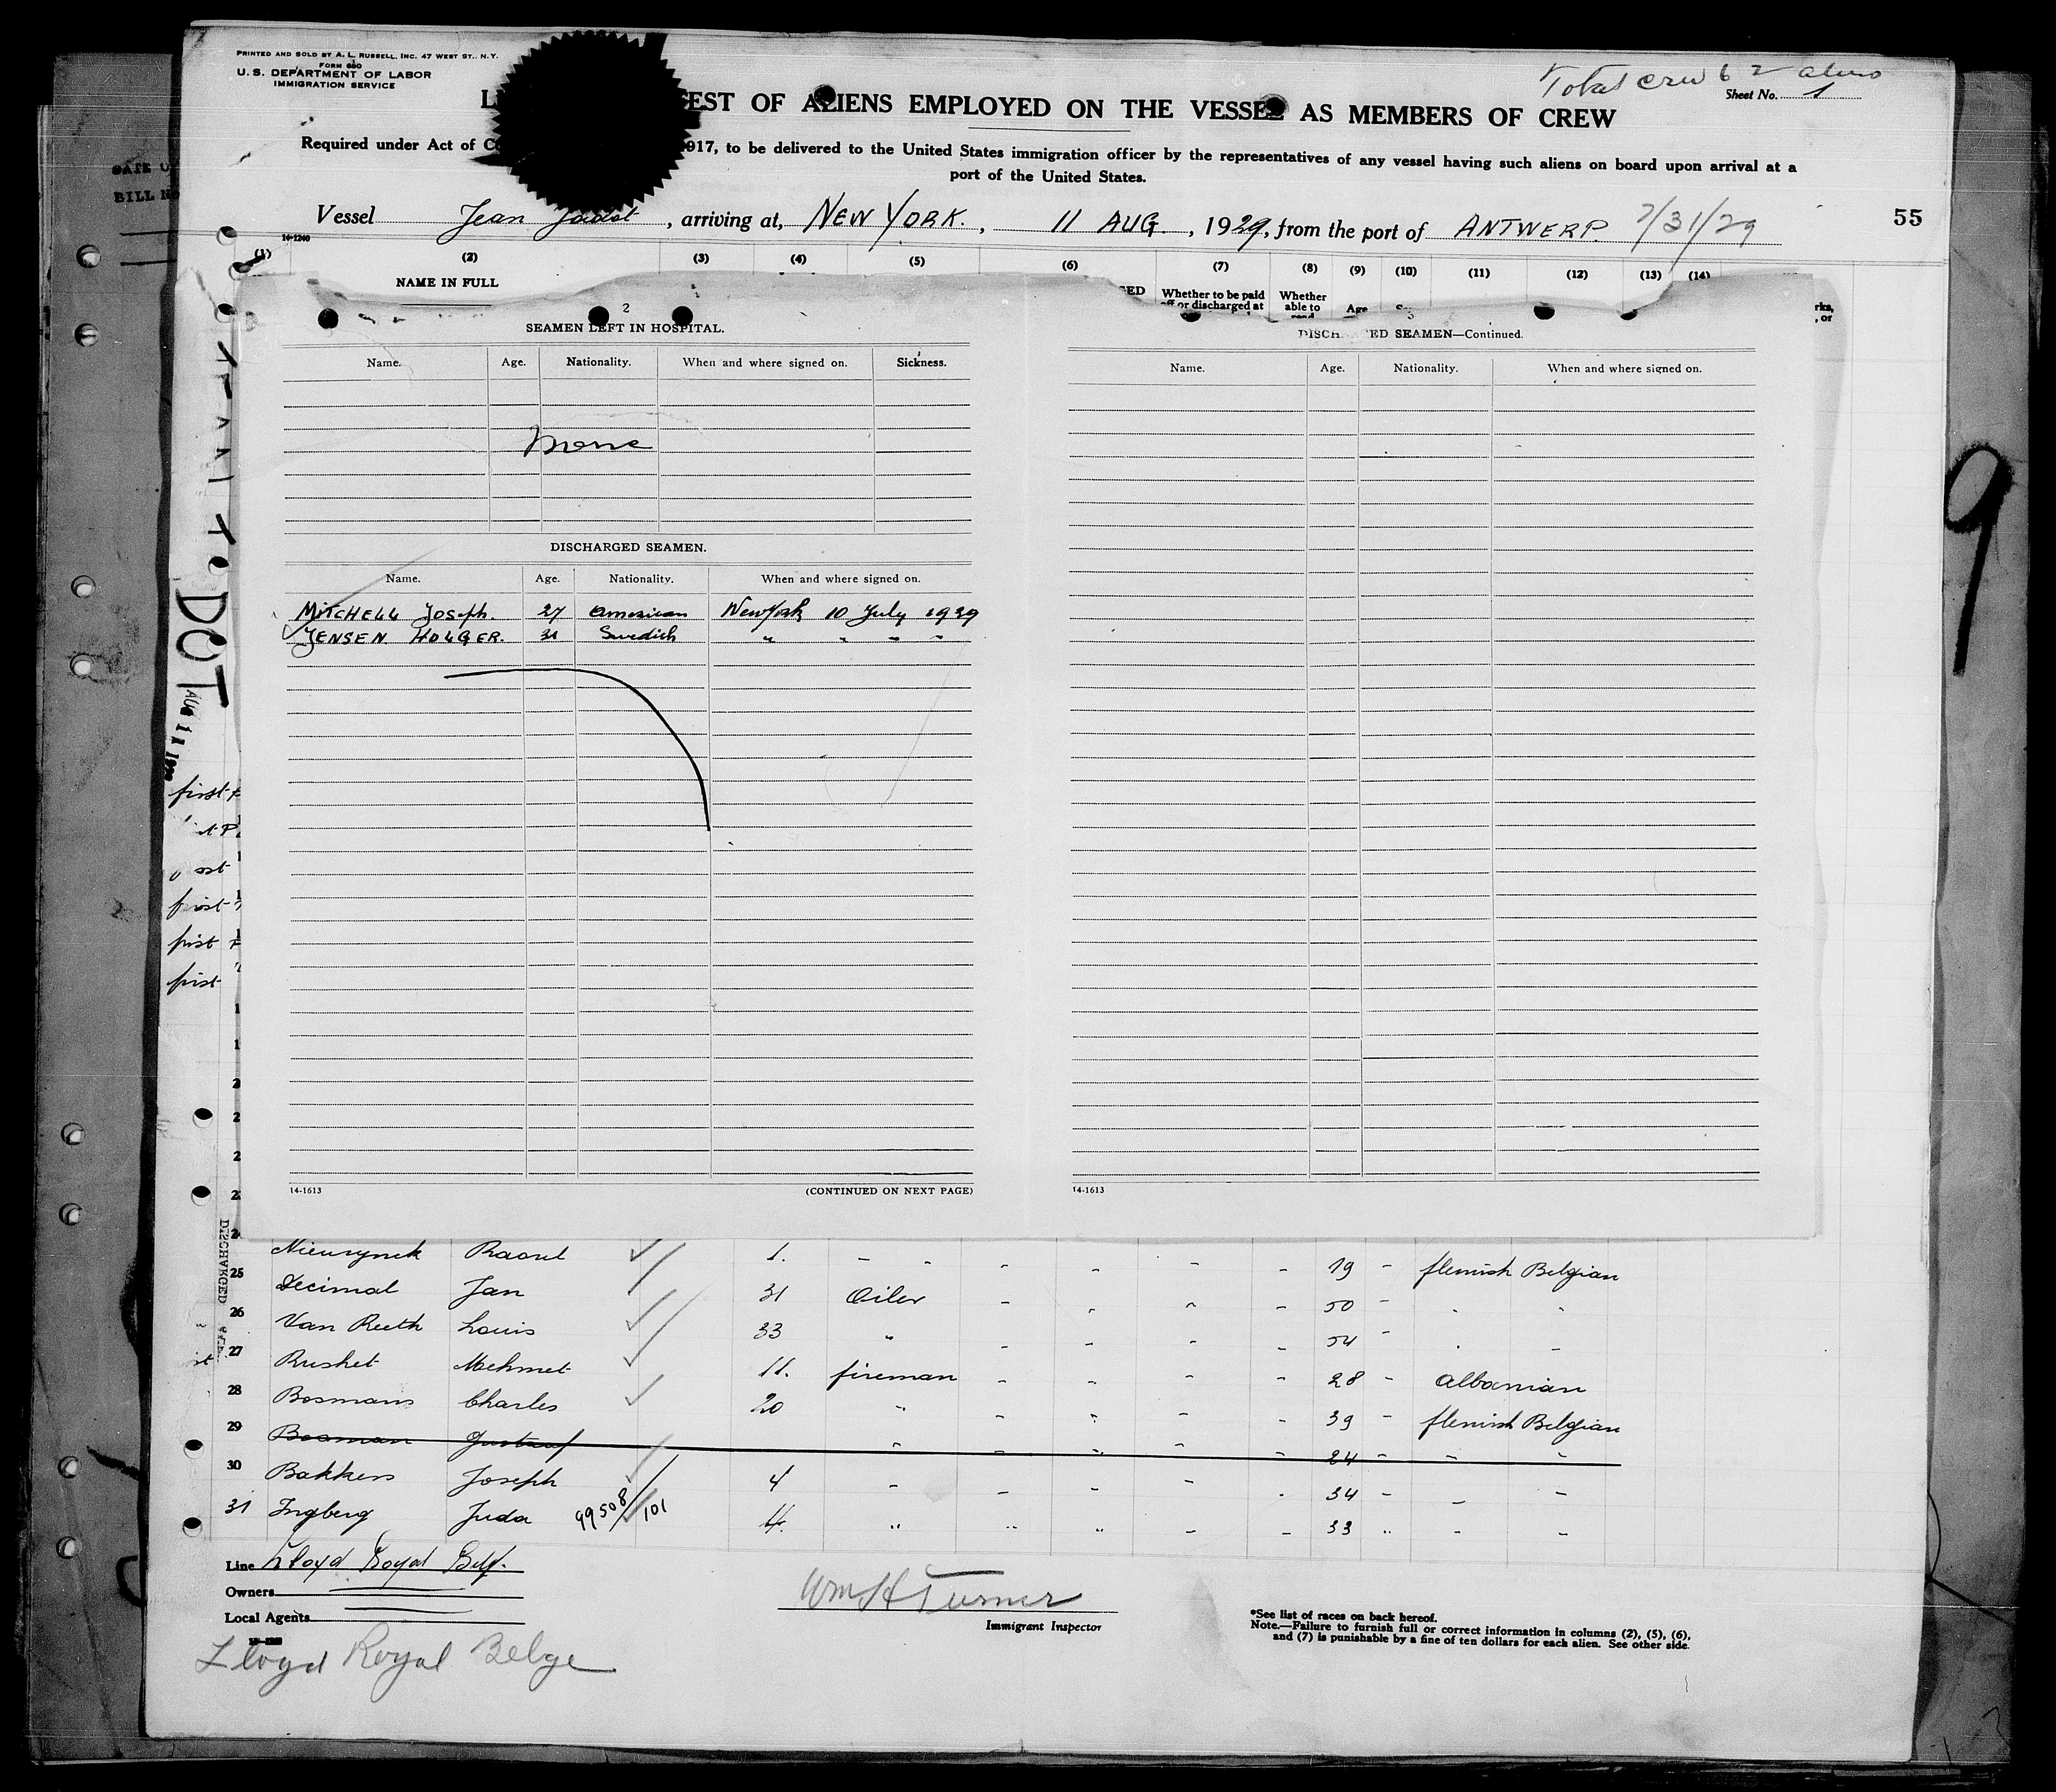 PRINTED AND SOLD BY A. L. RUSSELL, INC. 47 WEST ST., N.Y.
FORM 680
U. S. DEPARTMENT OF LABOR
IMMIGRATION SERVICE
Total crew 62 aliens
Sheet No. 1
EST OF ALIENS EMPLOYED ON THE VESSEL AS MEMBERS OF CREW
Required under Act of C 917, to be delivered to the United States immigration officer by the representatives of any vessel having such aliens on board upon arrival at a
port of the United States.
Vessel Jean Jadot, arriving at, NEW YORK., 11 AUG., 1929, from the port of ANTWERP. 7/31/29
55
14-1240
(1) (2) (3) (4) (5) (6) (7) (8) (9) (10) (11) (12) (13) (14)
NAME IN FULL
Whether to be paid off or discharged at
Whether able to
Age
2
SEAMEN LEFT IN HOSPITAL.
Name. Age. Nationality. When and where signed on. Sickness.
None
DISCHARGED SEAMEN.
Name. Age. Nationality. When and where signed on.
MITCHELL Joseph. 27 American New York 10 July 1929
JENSEN HOLGER. 31 Swedish " " " "
14-1613 (CONTINUED ON NEXT PAGE)
3
DISCHARGED SEAMEN—Continued.
Name. Age. Nationality. When and where signed on.
14-1613
DOT
AUG 11
first
first
first
first
DISCHARGED
9
Raoul 1. - - - - - - 19 - flemish Belgian
25 Decimal Jan 31 Oiler - - - - 50 - - -
26 Van Reeth Louis 33 " - - - - 54 - - -
27 Rushet Mehmet 11. fireman - - - - 28 - albanian
28 Bosmans Charles 20 " - - - - 39 - flemish Belgian
29 Bosman Gustaaf " - - - - 24 - - -
30 Bakkers Joseph 4 - - - - - 34 - - -
31 Ingberg Juda 99508/101 4. " " " - - 33 " - -
Line Lloyd Royal Belg.
Owners
Local Agents
Lloyd Royal Belge
Wm H Turner
Immigrant Inspector
*See list of races on back hereof.
Note.—Failure to furnish full or correct information in columns (2), (5), (6),
and (7) is punishable by a fine of ten dollars for each alien. See other side.